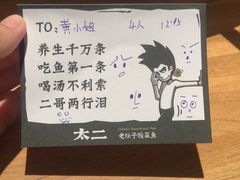 TO: 黄小姐 4人 12:15
养生千万条
吃鱼第一条
喝汤不利索
二哥两行泪
太二
老坛子酸菜鱼